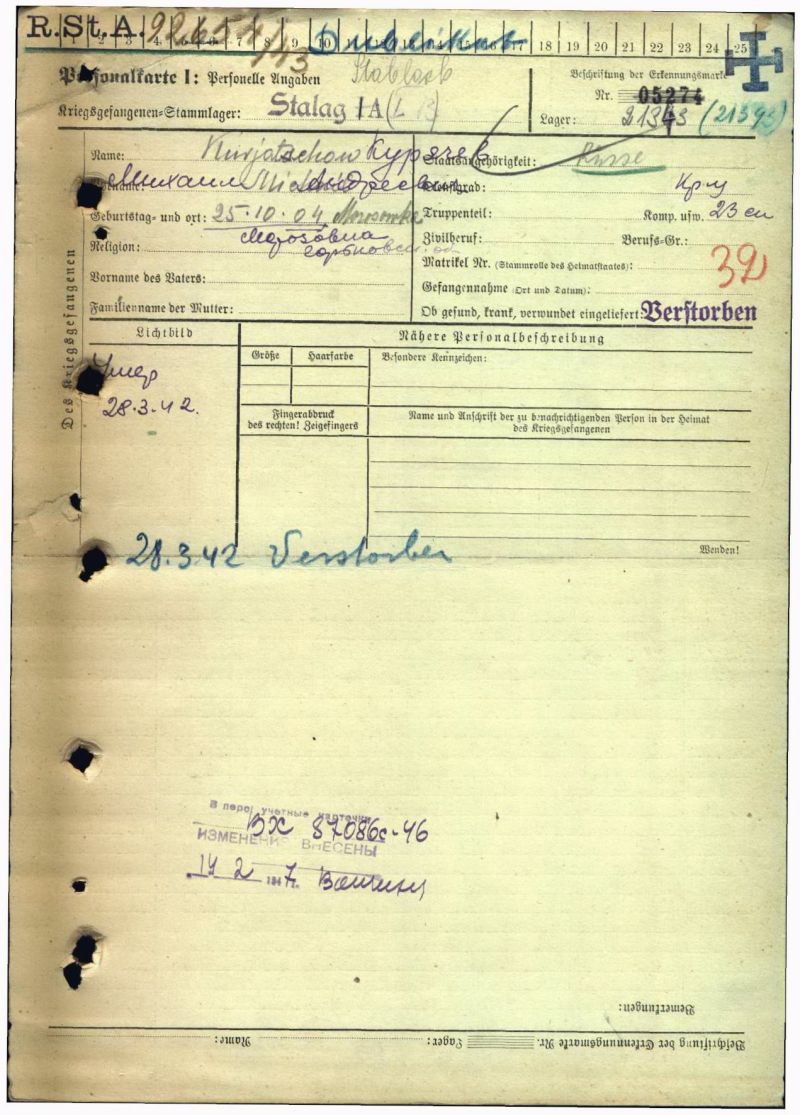 R.St.A. 92654/43
1 2 3 4 5 6 7 8 9 10 17 18 19 20 21 22 23 24 25
Personalkarte I: Personelle Angaben
Kriegsgefangenen-Stammlager: Stalag IA
Beschriftung der Erkennungsmarke
Nr. 05274
Lager:
Des Kriegsgefangenen
Name: Kurjatschow Курячев
Михаил Андреевич
Geburtstag- und ort: 25.10.04
Religion:
Vorname des Vaters:
Familienname der Mutter:
Staatsangehörigkeit: Russe
Dienstgrad: Кр-ц
Truppenteil: Komp. usw. 23 сп
Zivilberuf: Berufs-Gr.:
Matrikel Nr. (Stammrolle des Heimatstaates):
Gefangennahme (Ort und Datum):
Ob gesund, krank, verwundet eingeliefert: Verstorben
39
Lichtbild
Умер
28.3.42.
Nähere Personalbeschreibung
Größe Haarfarbe Besondere Kennzeichen:
Fingerabdruck
des rechten! Zeigefingers
Name und Anschrift der zu benachrichtigenden Person in der Heimat
des Kriegsgefangenen
Wenden!
28.3.42 Verstorben
В перс. учетные карточки
ВХ 87086с-46
ИЗМЕНЕНИЯ ВНЕСЕНЫ
14 2 1947г.
Bemerkungen:
Beschriftung der Erkennungsmarke Nr. Lager: Name: